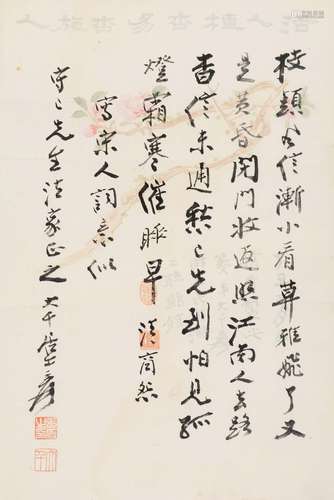 枝頭風信漸小看暮鴉飛了又
是黃昏閉門收返照江南人去路
杳信未通愁已先到怕見孤
燈霜寒催睡早 清商怨
寫宋人詞意似
先生法家正之 大千張爰